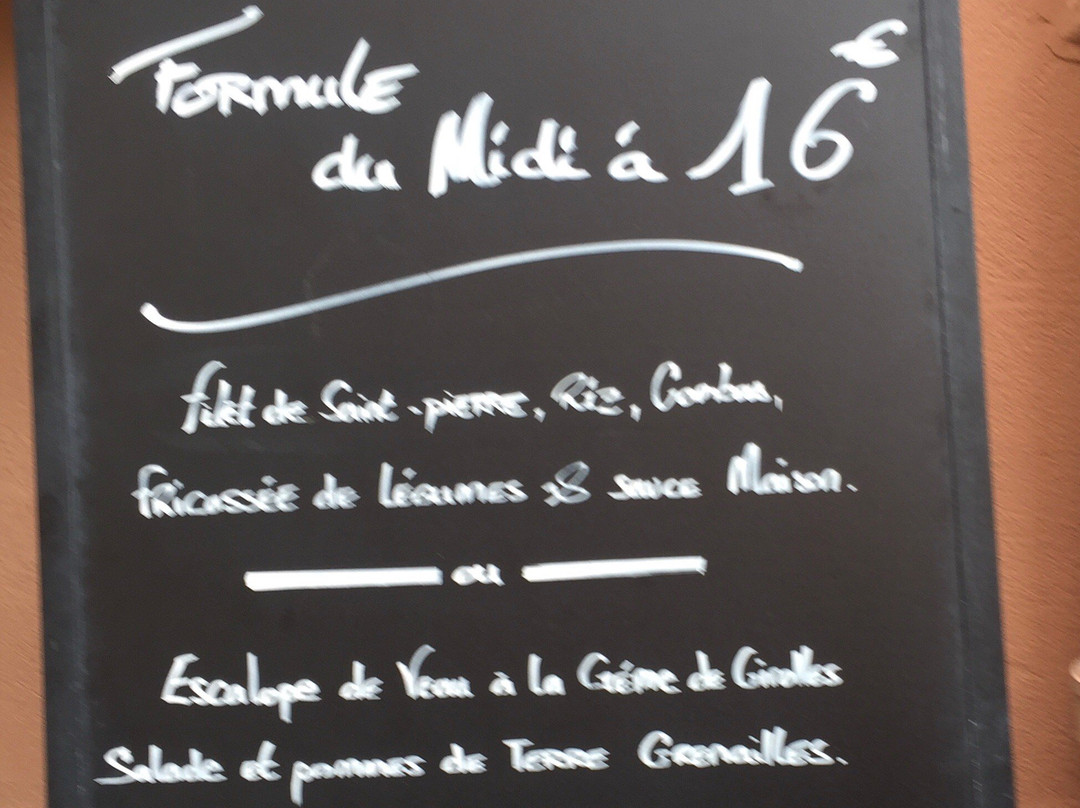 FORMULE €
du Midi à 16
filet de Saint-pierre, Riz, Gambas,
fricassée de légumes & sauce Maison.
ou
Escalope de Veau à la Crème de Girolles
Salade et pommes de Terre Grenailles.